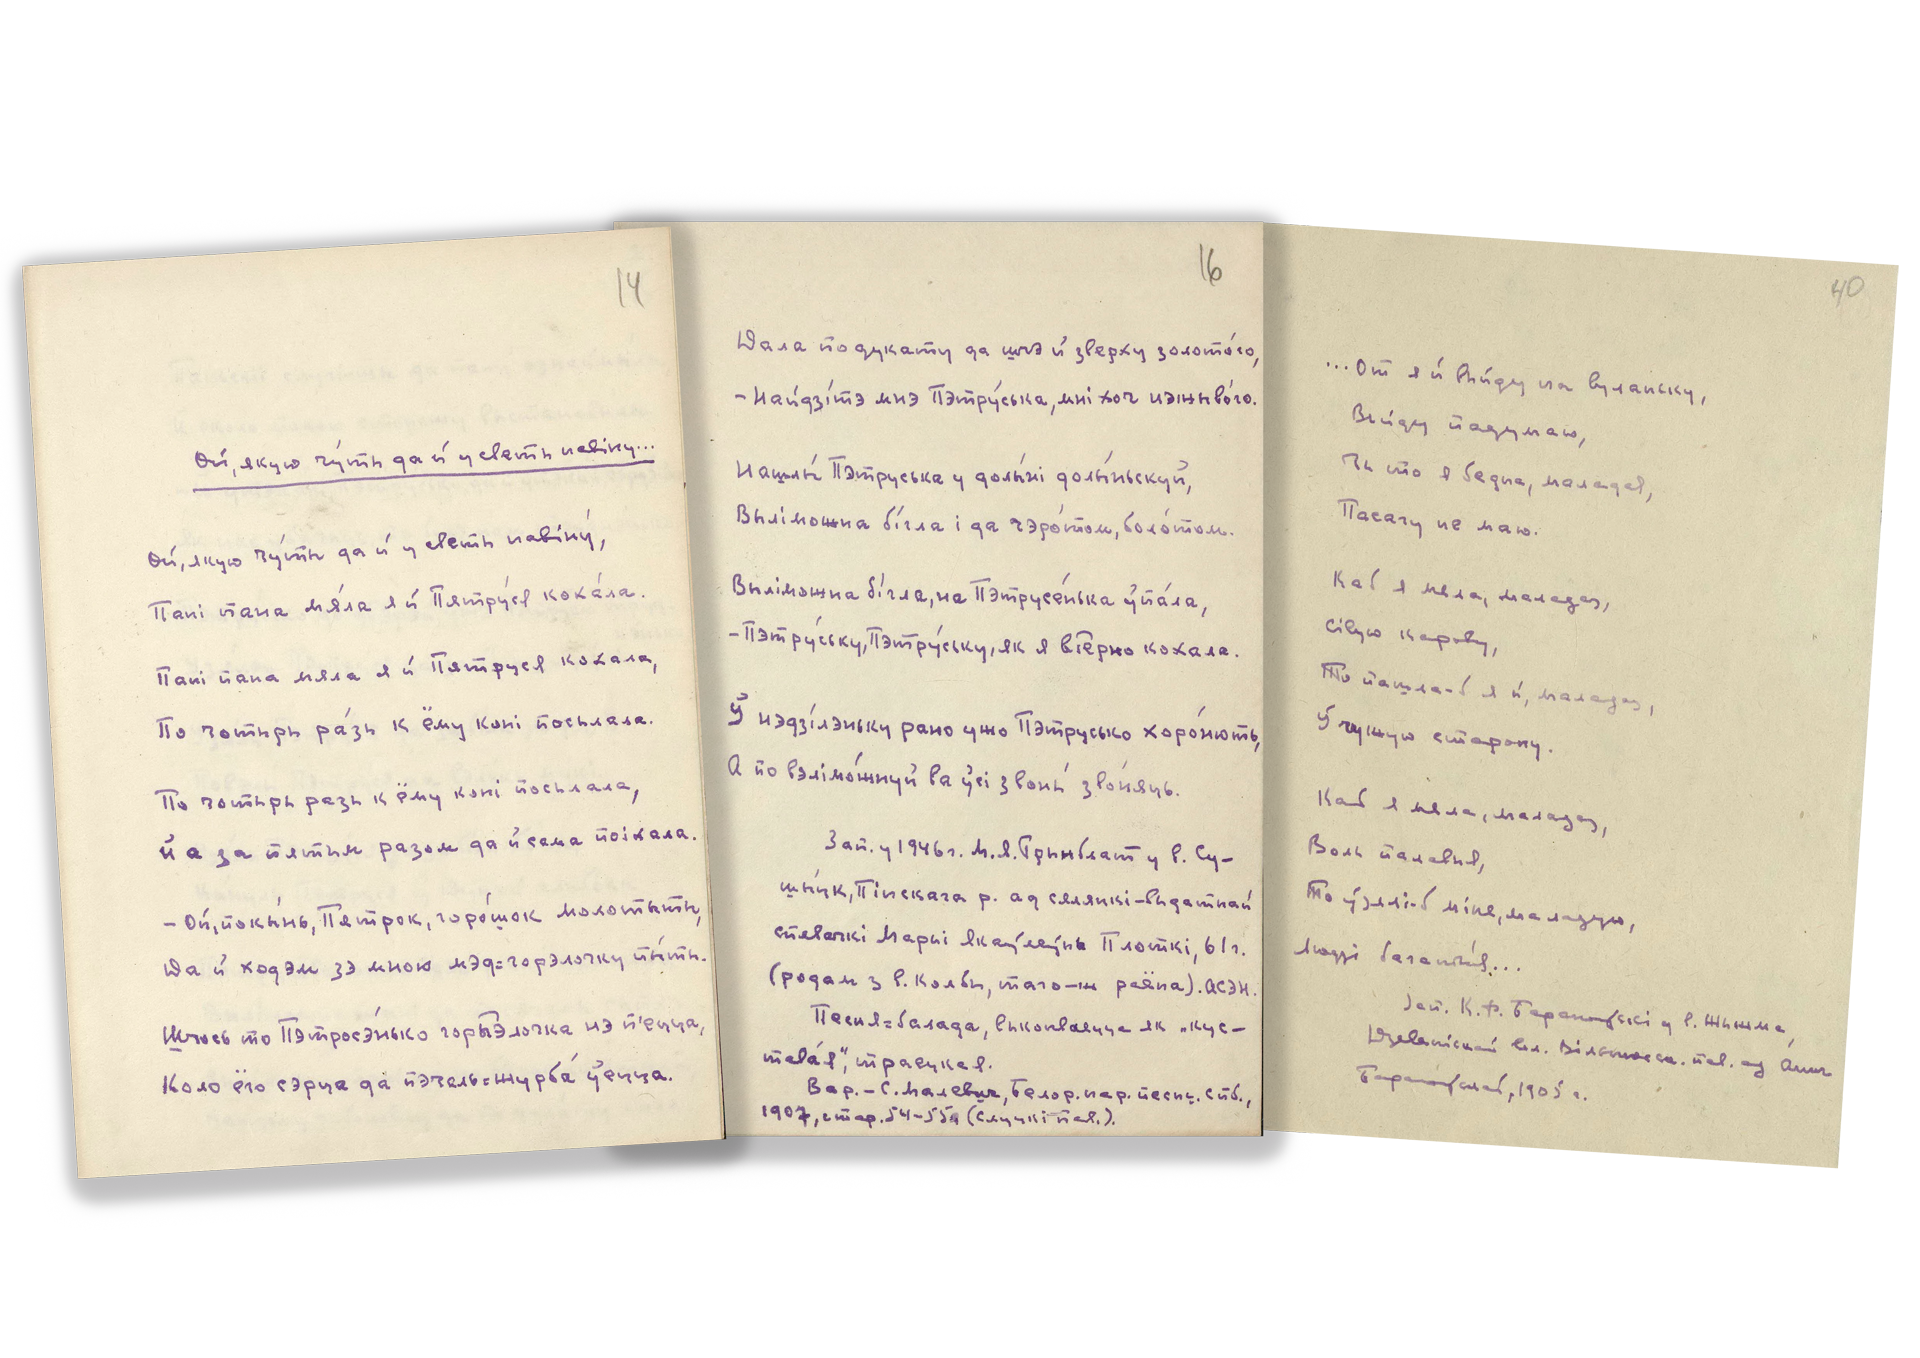 14
Ой, якую чу́ть да й у светь навіну...
Ой, якую чу́ть да й у светь навіну́,
Пані пана мя́ла я й Пятру́ся коха́ла.
Пані пана мяла я й Пятруся кохала,
По чотырь ра́зы к ёму коні посылала.
По чотырь разы к ёму коні посылала,
Й а за пятым разом да й сама поіхала.
– Ой, покы́нь, Пятрок, горо́шок молоты́ть,
Да й ходэм зэ мною мэд=горэлочку пы́ть.
Штось то Пэтросэ́нько горыэлочка нэ п'ецца,
Коло ёго сэрца да пэчель=журба́ ўецца.
16
Дала по дукату да шчэ й зверху золото́го,
– Найдзі́тэ мнэ Пэтру́ська, мні хоч нэжыво́го.
Нашлы́ Пэтруська у долы́ні долы́ньскуй,
Вылі́можна бі́гла і да чэро́том, боло́том.
Выліможна бі́гла, на Пэтрусе́нька ўпа́ла,
– Пэтру́ську, Пэтру́ську, як я віерно кохала.
Ў нэдзі́лэньку рано ужо Пэтрусько хоро́нють,
А по вэлімо́жнуй ва ўсі звоны́ зво́няць.
Зап. у 1946 г. М.Я. Грынблат у в. Су-
шы́цк, Пінскага р. ад сялянкі-выдатнай
спявачкі Марыі Якаўлеўны Плоткі, 61 г.
(родам з в. Колбы, таго-ж раёна). АСЭН.
Песня=балада, выконваецца як „кус-
тава́я", траецкая.
Вар. – С. Малевич, Белор. нар. песни. Спб.,
1907, стар. 54-55 (Слуцкі пав.).
40
...От я й вы́йду на вуланьску,
Вы́йду падумаю,
Чы то я бедна, маладая,
Пасагу не маю.
Каб я мяла, маладаз,
Сівую карову,
То пашла-б я й, маладаз,
Ў чужую старону.
Каб я мяла, маладаз,
Волы палавыя,
То ўзялі-б міне, маладую,
Людзі багатыя...
Зап. К.Ф. Бараноўскі у в. Жыжма
Дзевяніскай вол. пав. ад Анны
Бараноўскай, 1905 г.